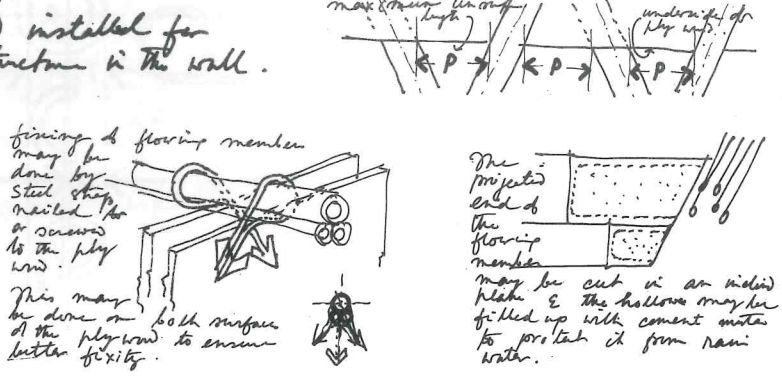 installed for
in the wall.
max & min
length
underside of
ply wood.
P P P
fixing of flowing members
may be
done by
Steel strap
nailed to
or screwed
to the ply
wood.
This may
be done on both surfaces
of the plywood to ensure
better fixity.
The
projected
end of
the
flowing
member
may be cut in an
plane & the hollows may be
filled up with cement
to protect it from rain
water.